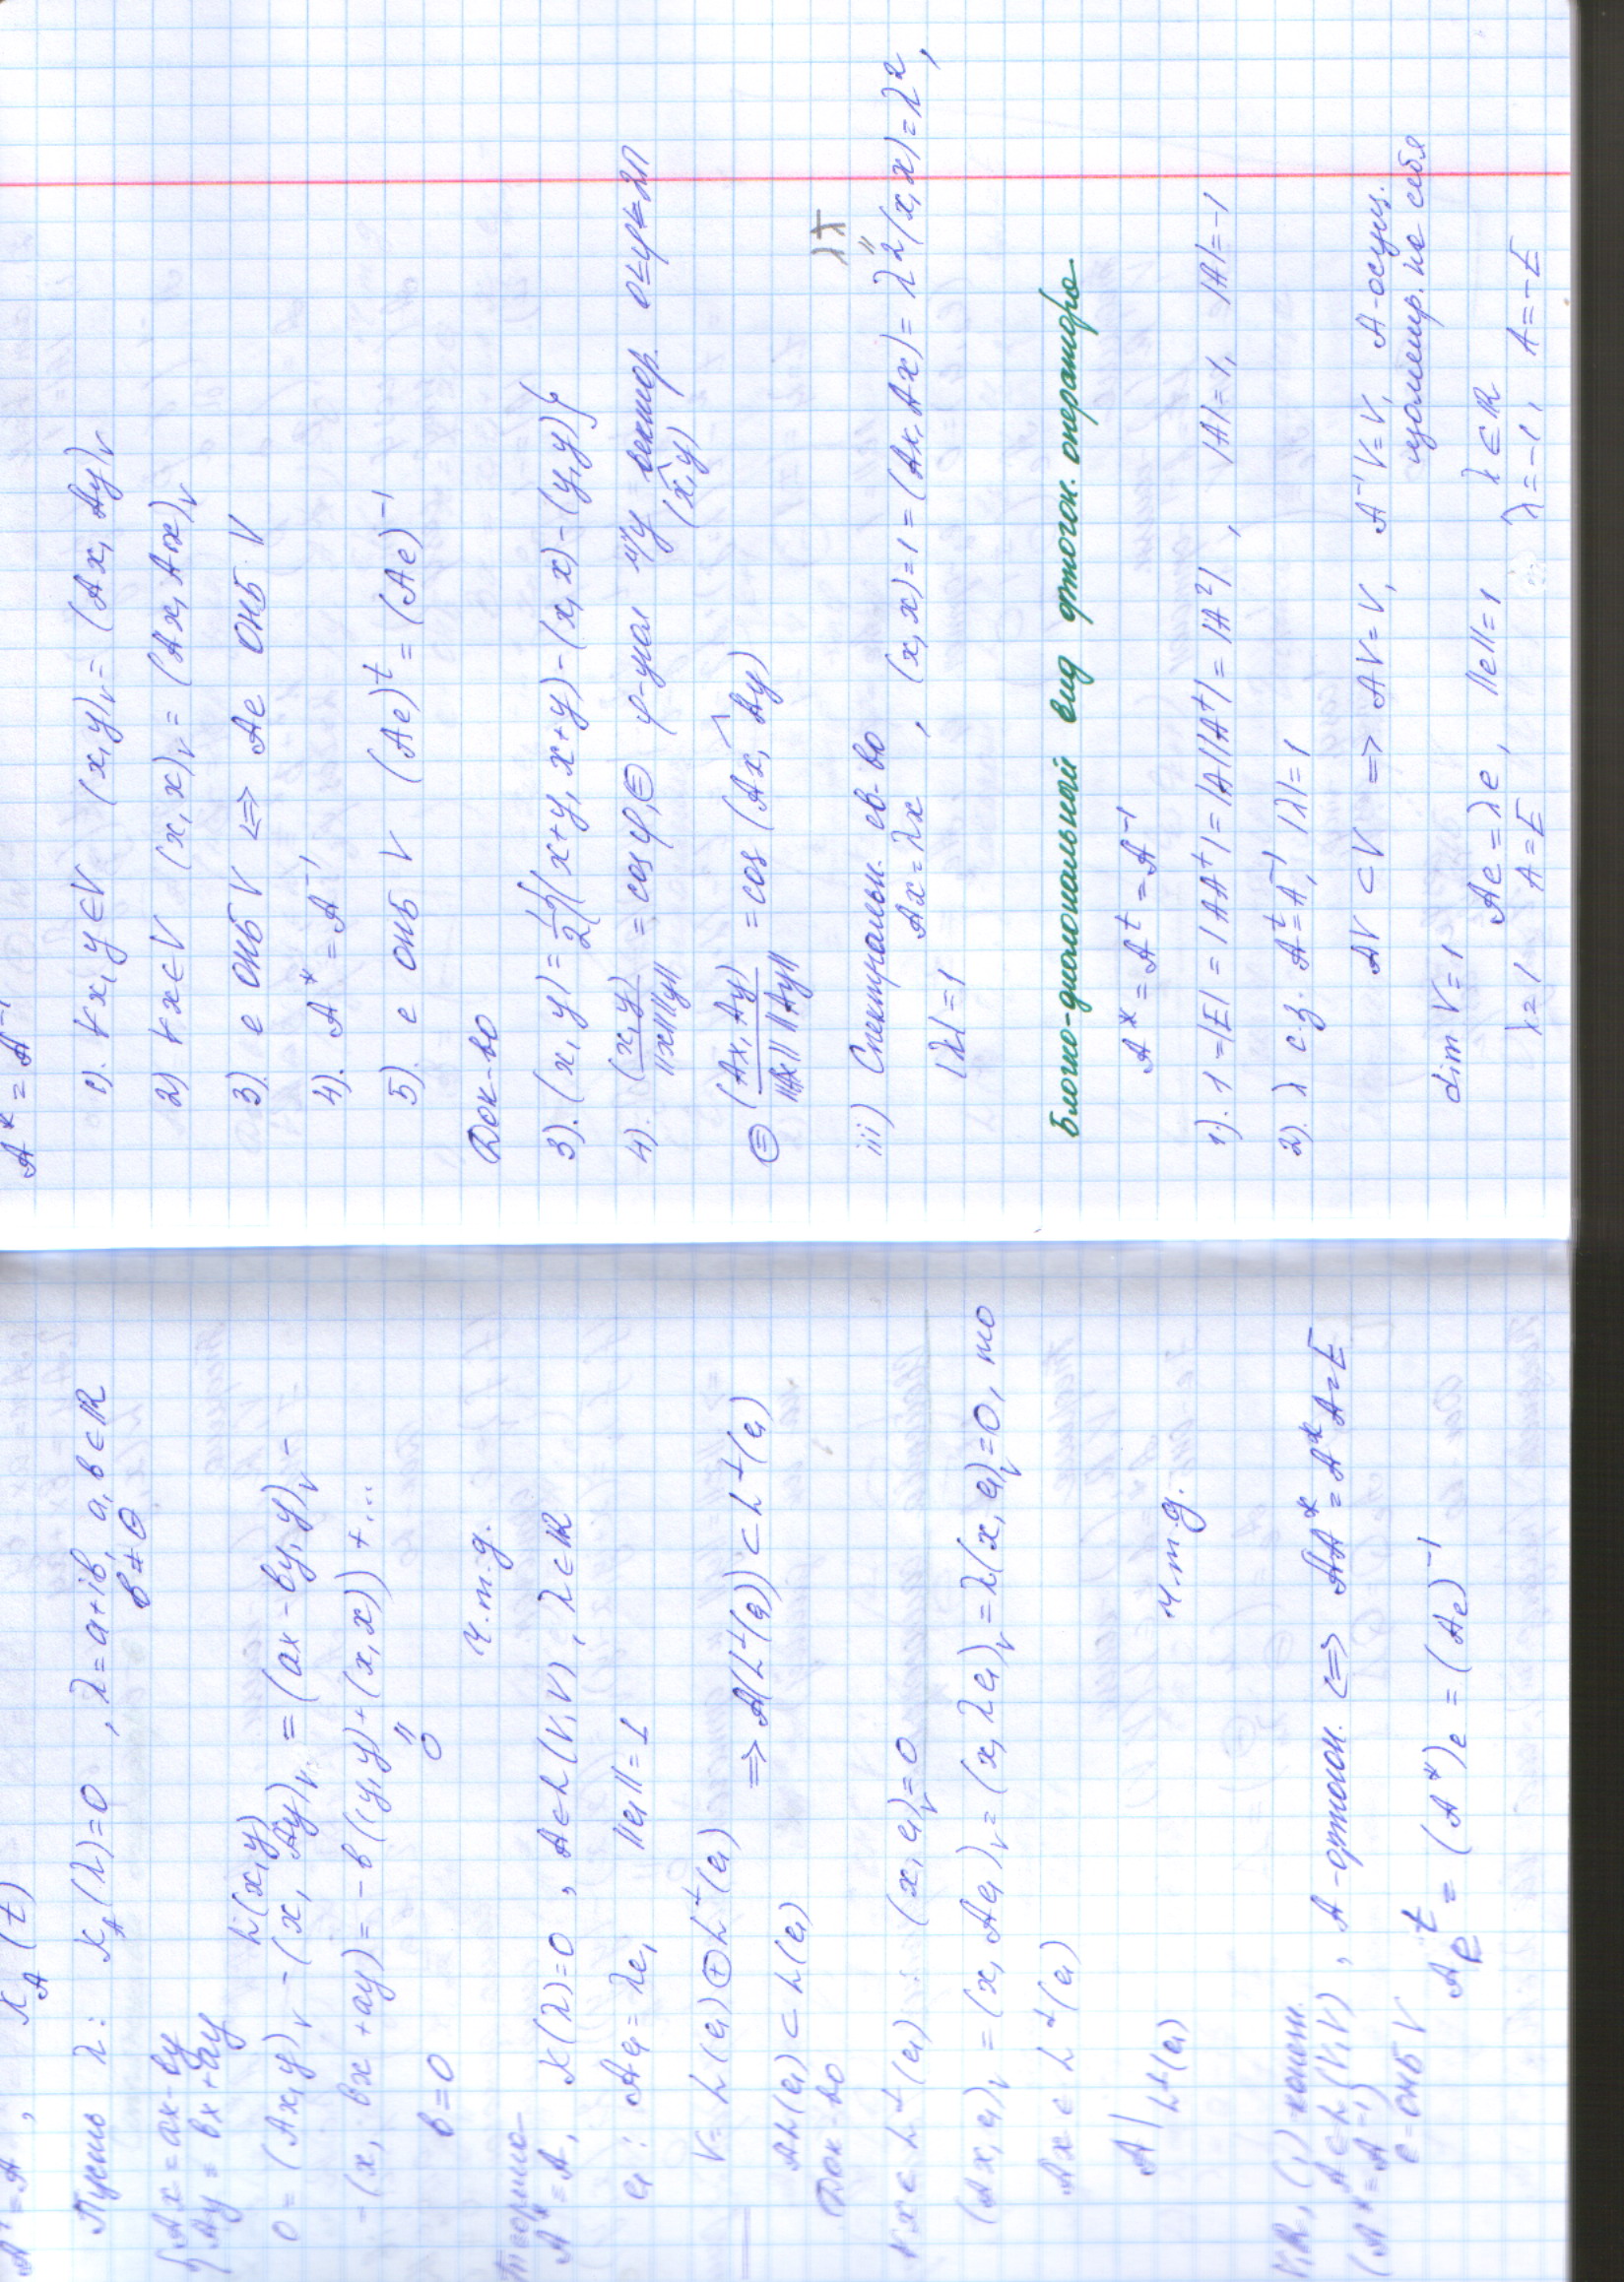 A* = A , K_A(t)
Пусть λ: K_A(λ)=0 , λ=a+ib, a, b∈ℝ
b≠0
{Ax = ax-by
Ay = bx+ay L(x,y)
0 = (Ax,y)_V - (x, Ay)_V = (ax-by, y)_V -
-(x, bx+ay) = -b((y,y)+(x,x)) + ...
"
0
b=0 ч.т.д.
Теорема
A*=A, K(λ)=0 , A∈L(V,V) , λ∈ℝ
e₁: Ae₁=λe₁ ||e₁||=1
V = L(e₁)⊕L^⊥(e₁) => A(L^⊥(e₁))⊂L^⊥(e₁)
AL(e₁)⊂L(e₁)
Док-во
∀x∈L^⊥(e₁): (x, e₁)_V=0
(Ax, e₁)_V = (x, Ae₁)_V = (x, λe₁)_V = λ(x, e₁)_V=0, то
Ax∈L^⊥(e₁)
A|_{L^⊥(e₁)} ч.т.д.
V, ℝ, (,) конечн.
A∈L(V,V) , A-ортогон. <=> AA*=A*A=E
(A*=A⁻¹)
e-ОНБ V
A_e^t = (A*)_e = (A_e)⁻¹
A* = A⁻¹
1). ∀x,y∈V (x,y)_V = (Ax, Ay)_V
2) ∀x∈V (x,x)_V = (Ax, Ax)_V
3). e ОНБ V <=> Ae ОНБ V
4). A* = A⁻¹
5). e ОНБ V (Ae)^t = (Ae)⁻¹
Док-во
3). (x,y) = 1/2{(x+y, x+y)-(x,x)-(y,y)}
4). (x,y)/||x||||y|| = cos φ, ⊜ φ-угол м/у вектор. 0≤φ≤2π
(x,^y)
⊜ (Ax, Ay)/||Ax|| ||Ay|| = cos (Ax,^Ay)
iii) Спектральн. св-во
λλ̄
"
Ax=λx , (x,x)=1=(Ax,Ax)=λ²(x,x)=λ²,
|λ|=1
Блочно-диагональный вид ортогон. оператора.
A* = A^t = A⁻¹
1). 1=|E|=|AA^t|=|A||A^t|=|A²| , |A|=1, |A|=-1
2). λ с.з. A^t=A⁻¹, |λ|=1
AV⊂V => AV=V, A⁻¹V=V, A-осущ.
изометр. на себя
dim V=1 Ae=λe , ||e||=1 λ∈ℝ
λ=1 A=E λ=-1, A=-E